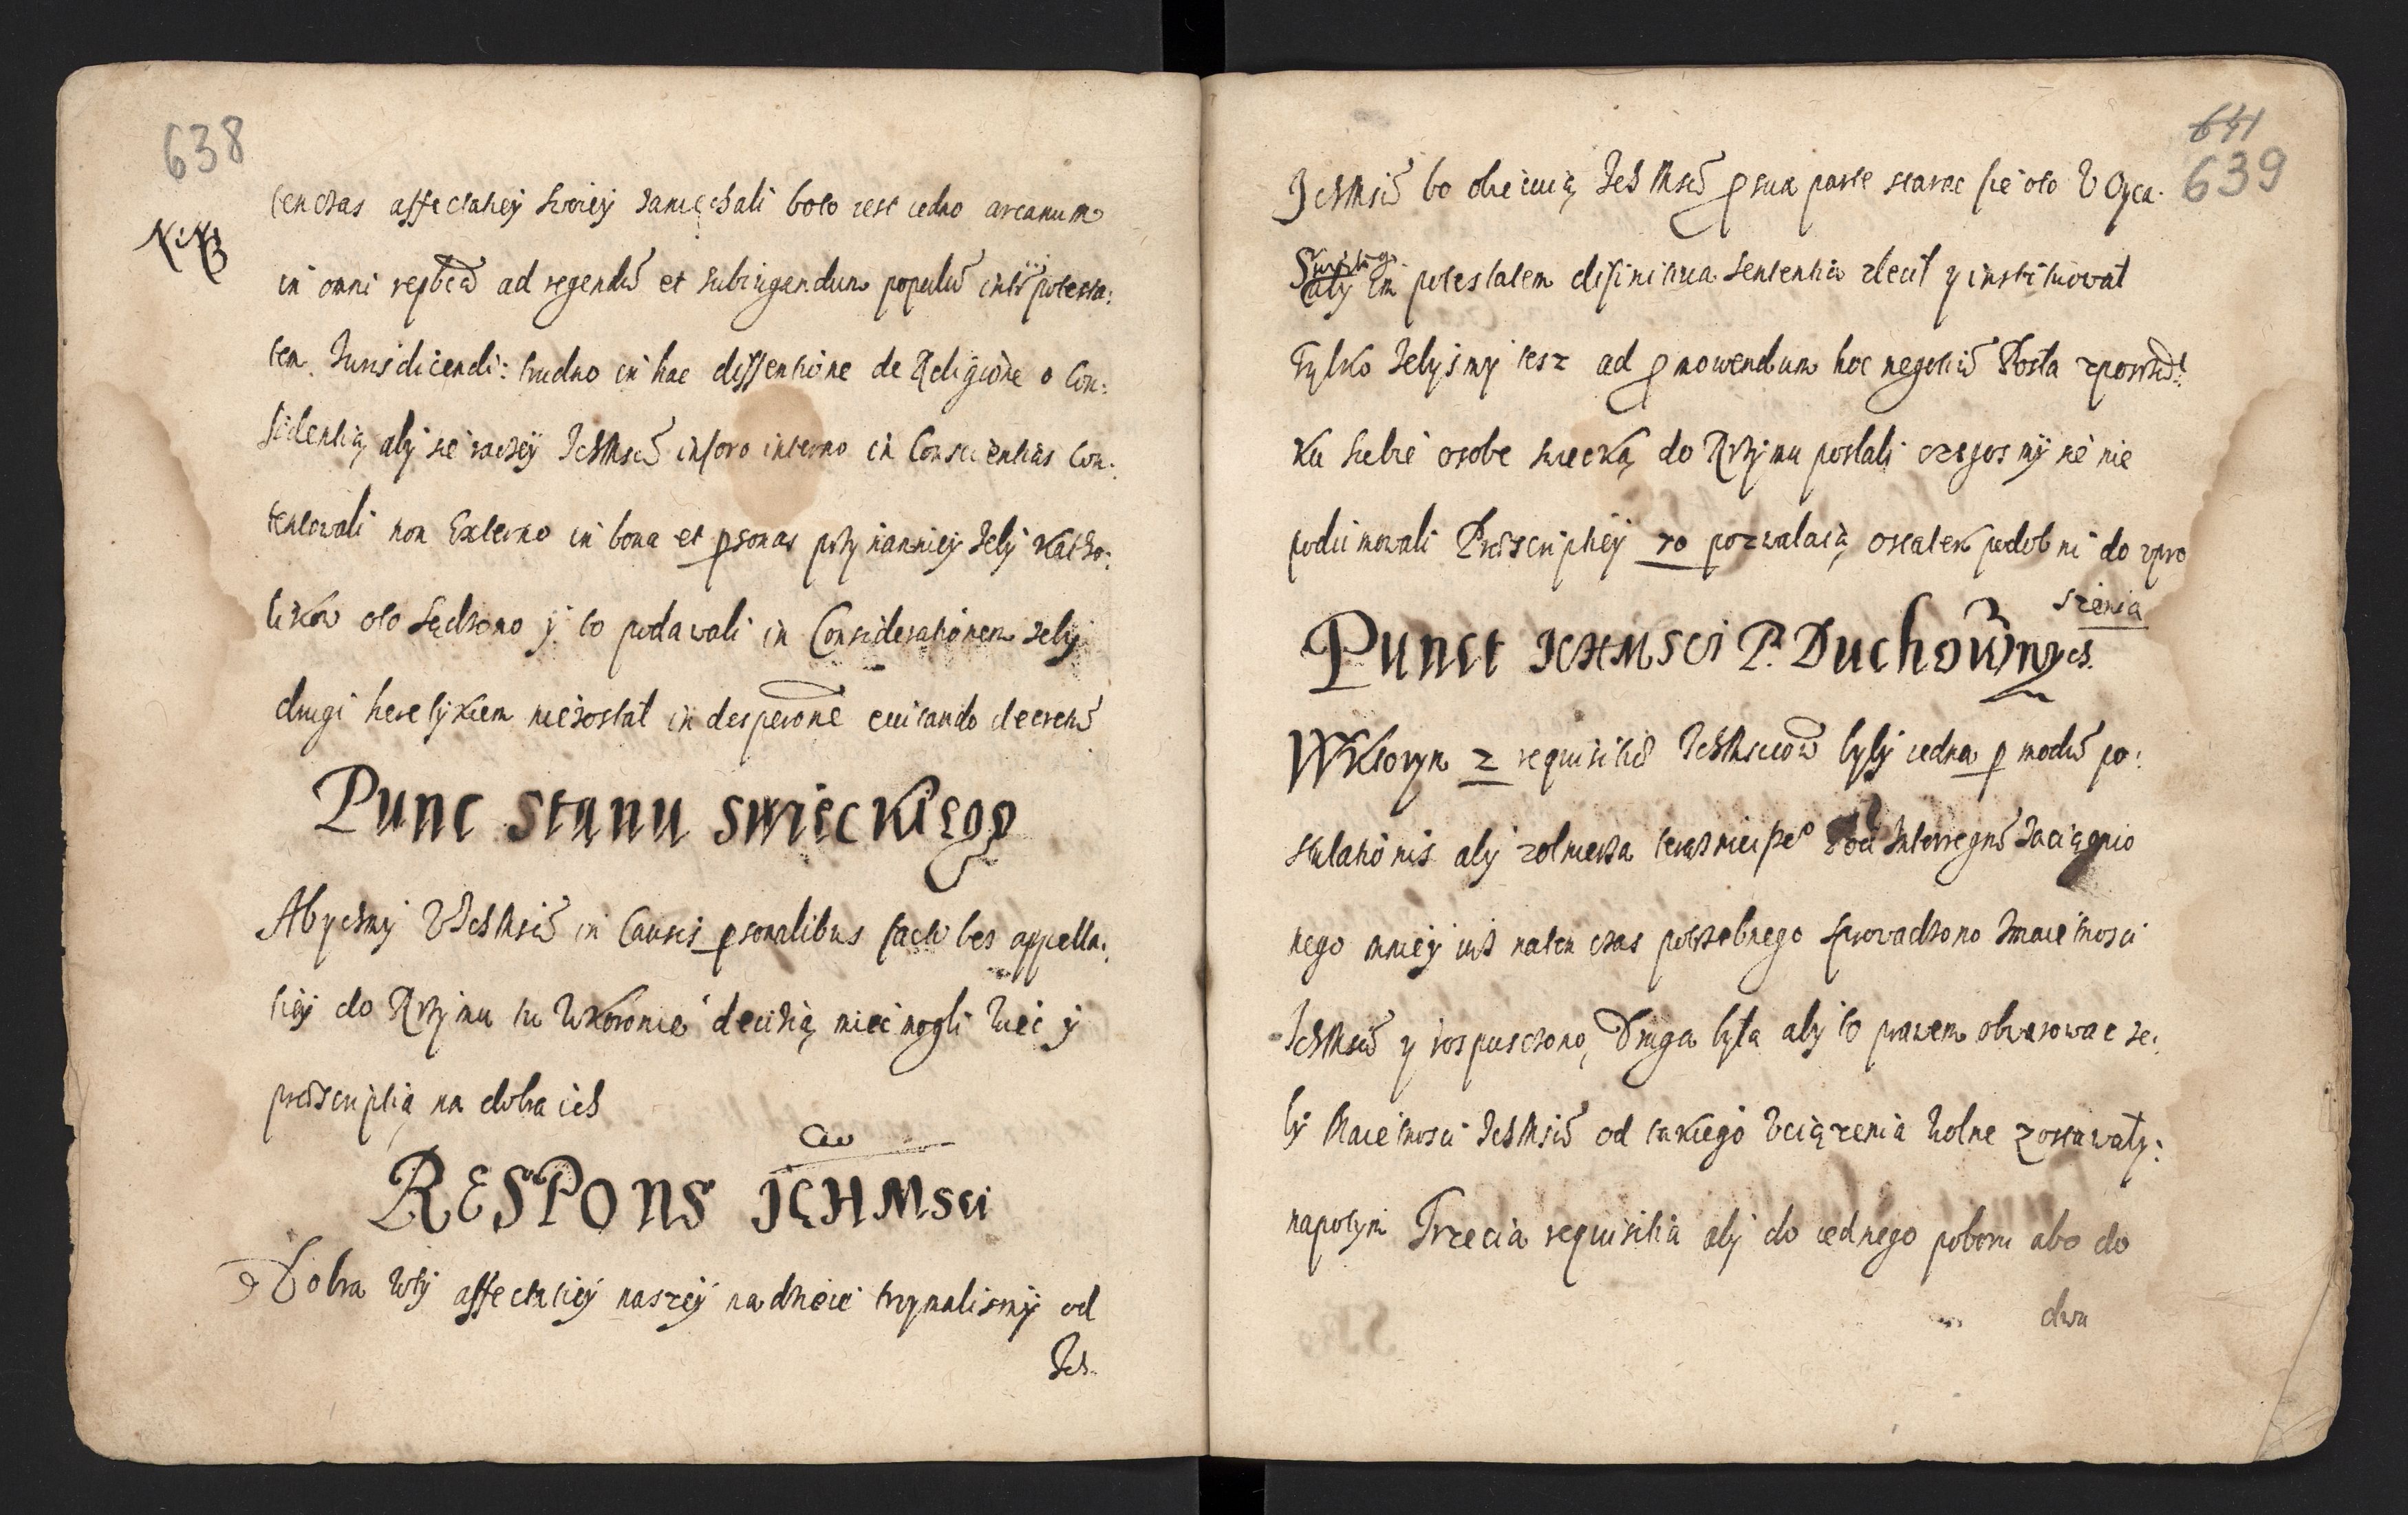 638
ten czas affectatiey swoiey zaniechali boto iest iedno arcanum
NB
in omni repbca ad regendu et subiugandum populu potesta:
tem Jurisdicendi: trudno in hac dissentione de Religione o Con:
fidentią, aby sie raczey Jchmsciu inforo interno in Conscientias Con:
tentowali non Externo in bona et psonas przynamniey zeby Katho:
likow oto sądzono y to podawali in Considerationem zeby
drugi heretykiem niezostał in desperone euitando decretu
Punc stanu swieckiego
Abychmy V Jchmsciu in Causis psonalibus sądu bes appella:
tiey do Rzymu tu Wkoronie decizią miec mogli wiec y
prescriptią na dobra ich
RESPONS JCHMsci
Dobra wty affectatiey naszey nadzieie trzymalismy od
Jch
641
639
Jchmsciu bo obiecuią Jchmsciu p sua parte starac sie oto V Oyca
Swiętego
aby im potestatem difinitiua sententia zlecił y instituował
Tylko zebysmy tesz ad pmowendum hoc negotiu Posła
ku siebie osobe swiecką do Rzymu posłali czegosmy sie nie
podiimowali Prescriptiey zo pozwalaią ostatek podobni do vpro
szenia
Punct JCHMSCI P. Duchownych
Wktorym 2 requisitie Jchmsciow były iedna p modu po:
stulationis aby zolnierza Interregnu zaciągnio
nego mniey iusz naten czas potrzebnego sprowadzono zmaietnosci
Jchmsciu y rospusczono, Druga była aby to prawem obwarowac ze:
by Maietnosci Jchmsciu od takiego vciązenia wolne zostawały:
napotym Trzecia requisitia aby do iednego poboru abo do
dwu